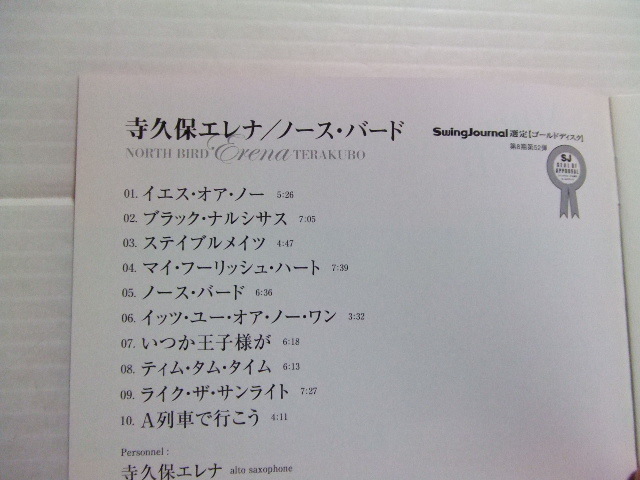 寺久保エレナ／ノース・バード
NORTH BIRD Erena TERAKUBO
SwingJournal 選定【ゴールドディスク】
第8期第52弾
SJ
SEAL OF
APPROVAL
01. イエス・オア・ノー 5:26
02. ブラック・ナルシサス 7:05
03. ステイブルメイツ 4:47
04. マイ・フーリッシュ・ハート 7:39
05. ノース・バード 6:36
06. イッツ・ユー・オア・ノー・ワン 3:32
07. いつか王子様が 6:18
08. ティム・タム・タイム 6:13
09. ライク・ザ・サンライト 7:27
10. A列車で行こう 4:11
Personnel :
寺久保エレナ alto saxophone